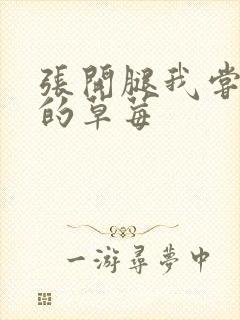 張開腿我嘗
的草莓
一游尋夢中